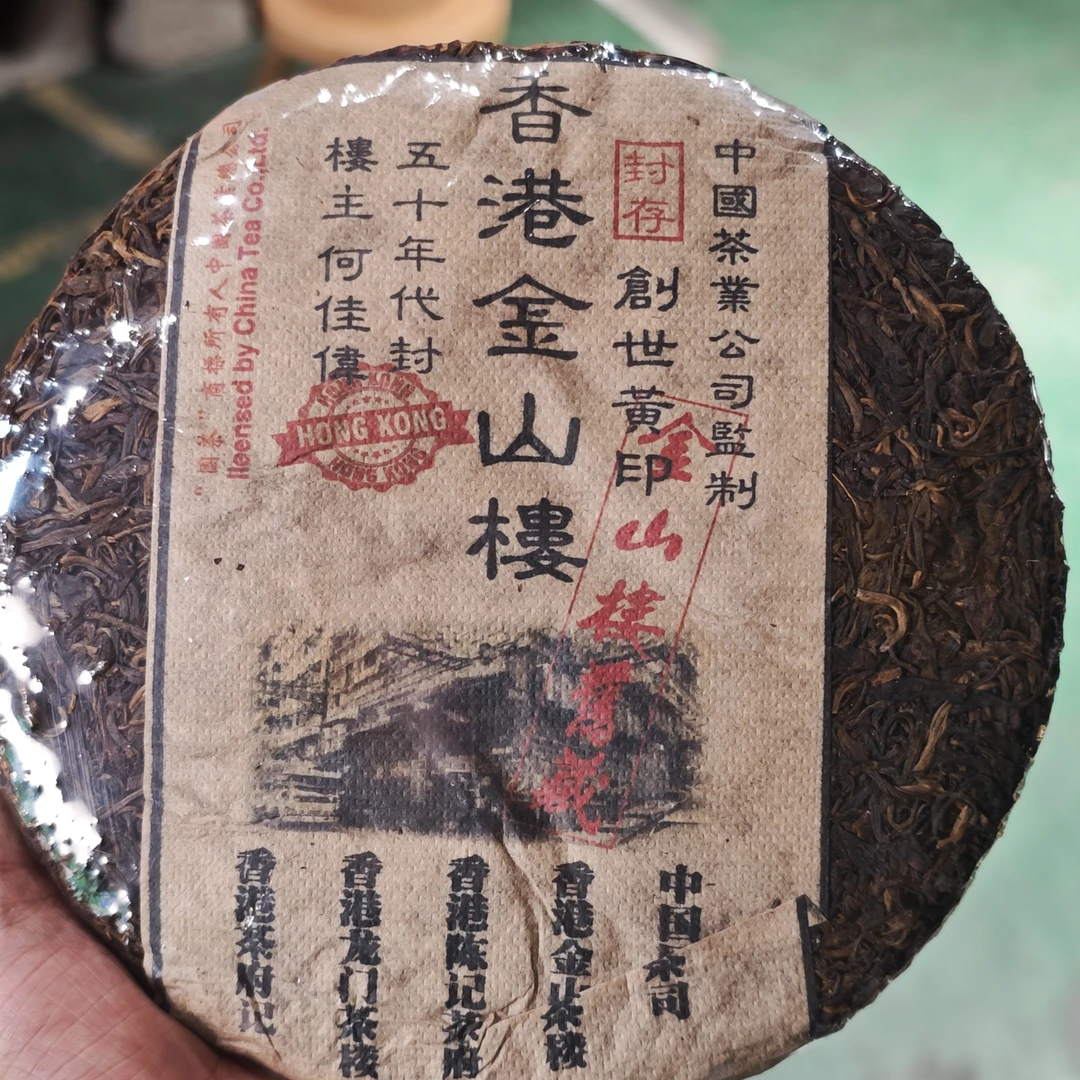 中國茶業公司監制
封存
創世黃印
香港金山樓
五十年代封
樓主何佳偉
HONG KONG
HONG KONG
HONG KONG
金山楼
"國茶"商標所有人中國茶
licensed by China Tea Co.,Ltd.
香港金山茶楼
香港陈记茶府
香港龙门茶楼
香港茶府记